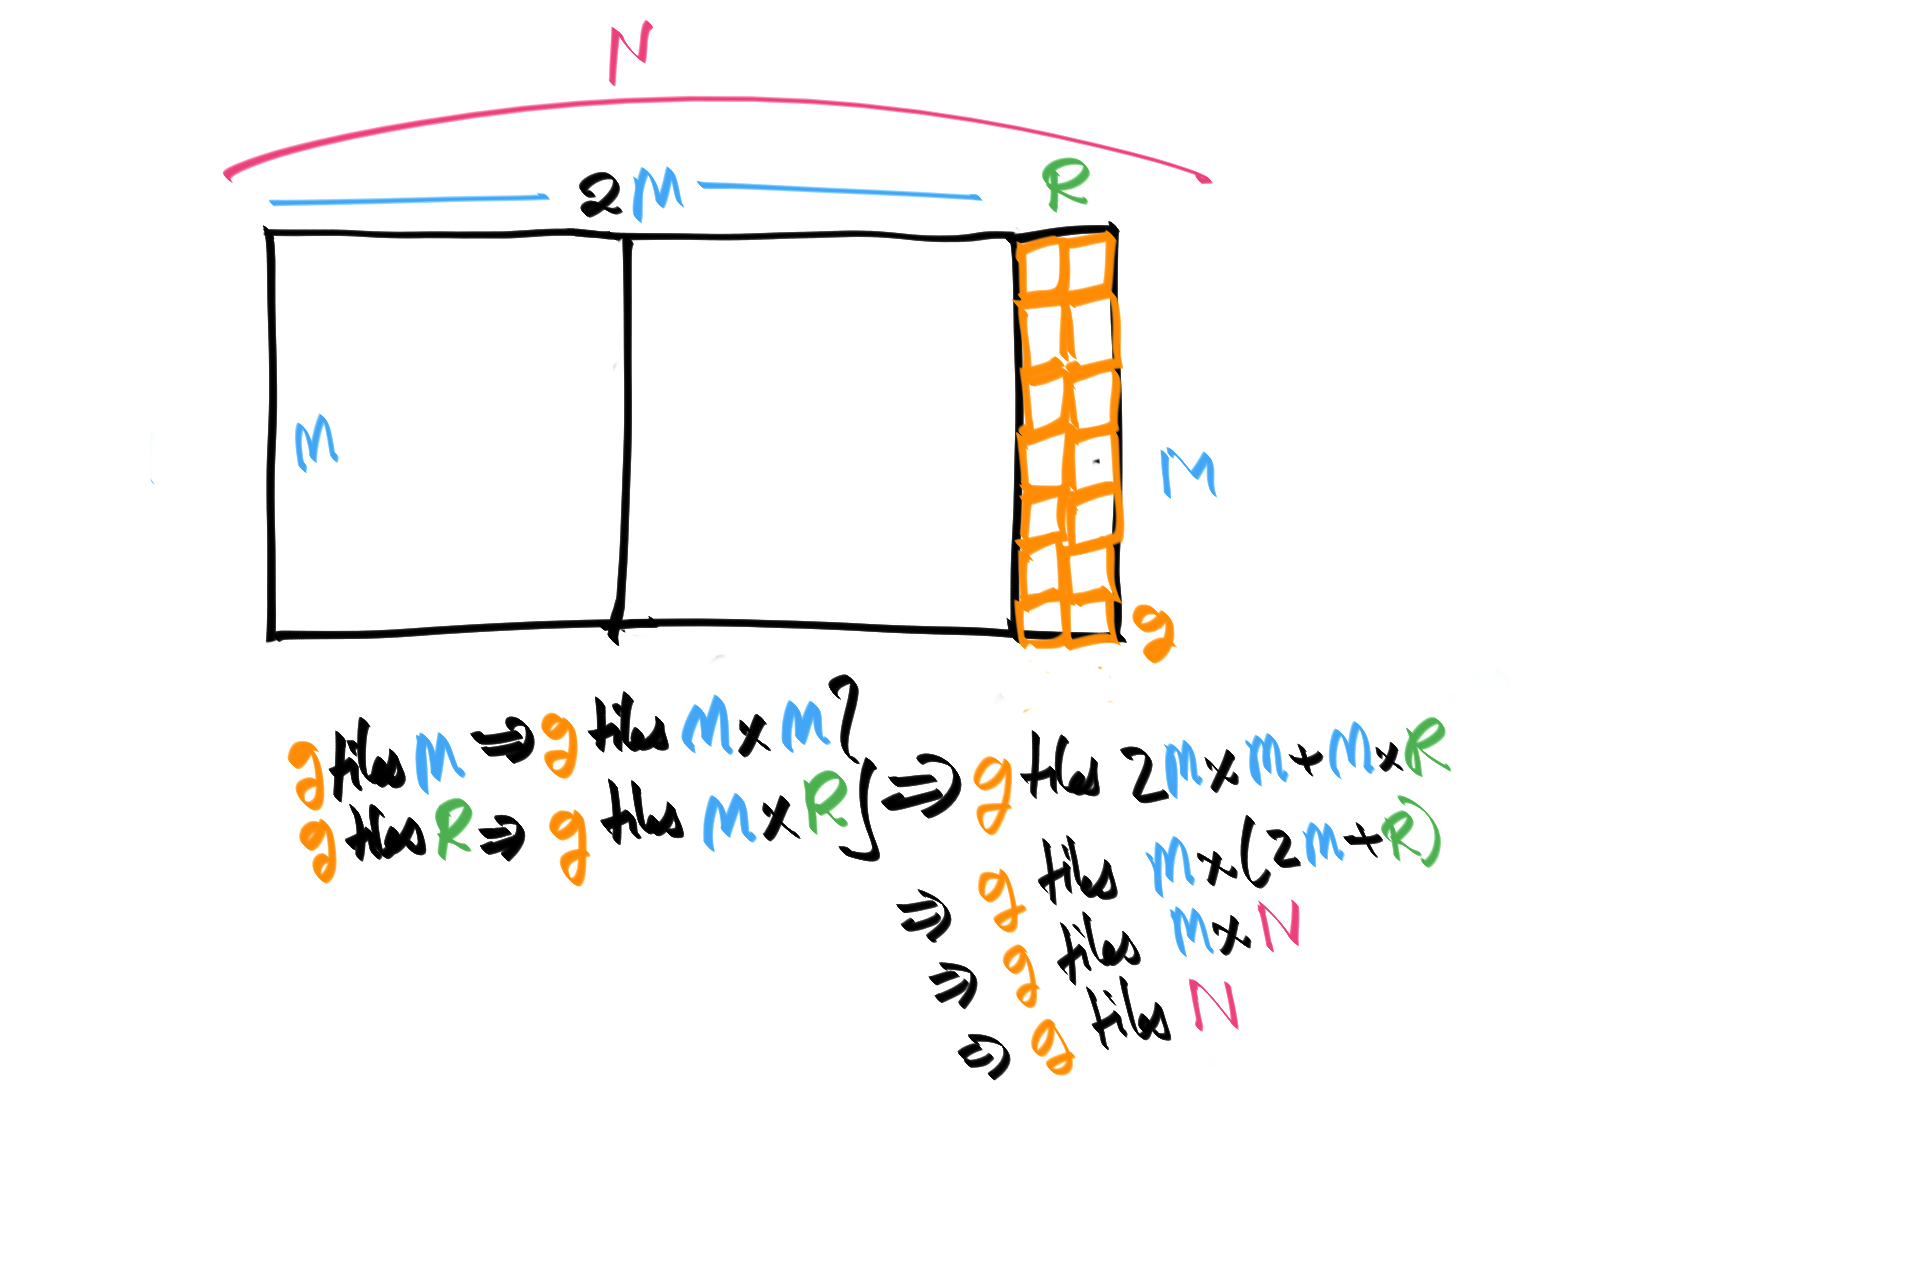 N
2M
R
M
M
g
g tiles M ⇒ g tiles M x M
g tiles R ⇒ g tiles M x R } ⇒ g tiles 2M x M + M x R
⇒ g tiles M x (2M + R)
⇒ g tiles M x N
⇒ g tiles N